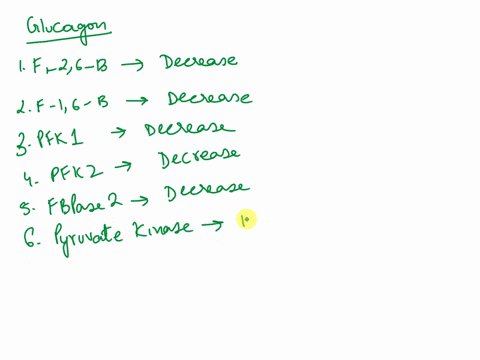 Glucagon
1. F-2,6-B → Decrease
2. F-1,6-B → Decrease
3. PFK1 → Decrease
4. PFK2 → Decrease
5. FBPase2 → Decrease
6. Pyruvate Kinase →